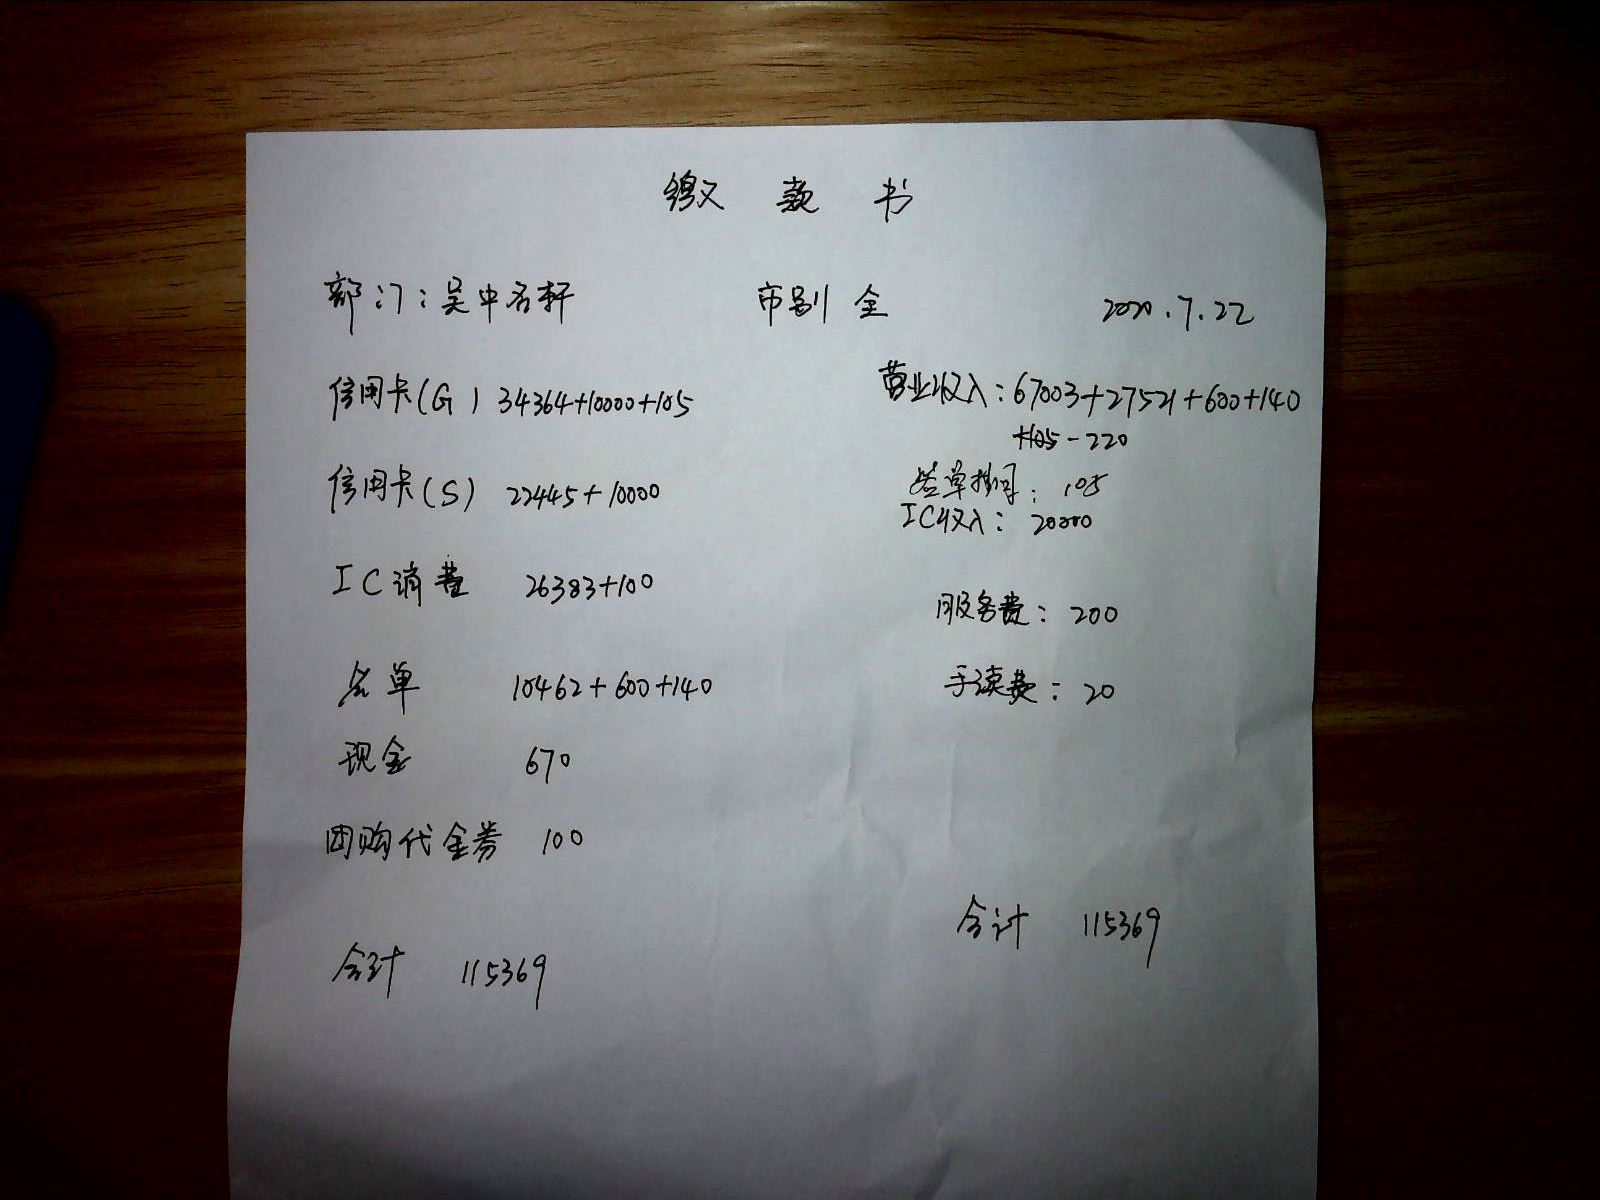 缴款书
部门：吴中名轩 市别 全 2020.7.22
信用卡(G) 34364+10000+105
营业收入：67003+27521+600+140
-220
信用卡(S) 22445+10000
签单挂：105
IC收入：20000
IC消费 26383+100
服务费：200
签单 10462+600+140
手续费：20
现金 670
团购代金券 100
合计 115369
合计 115369